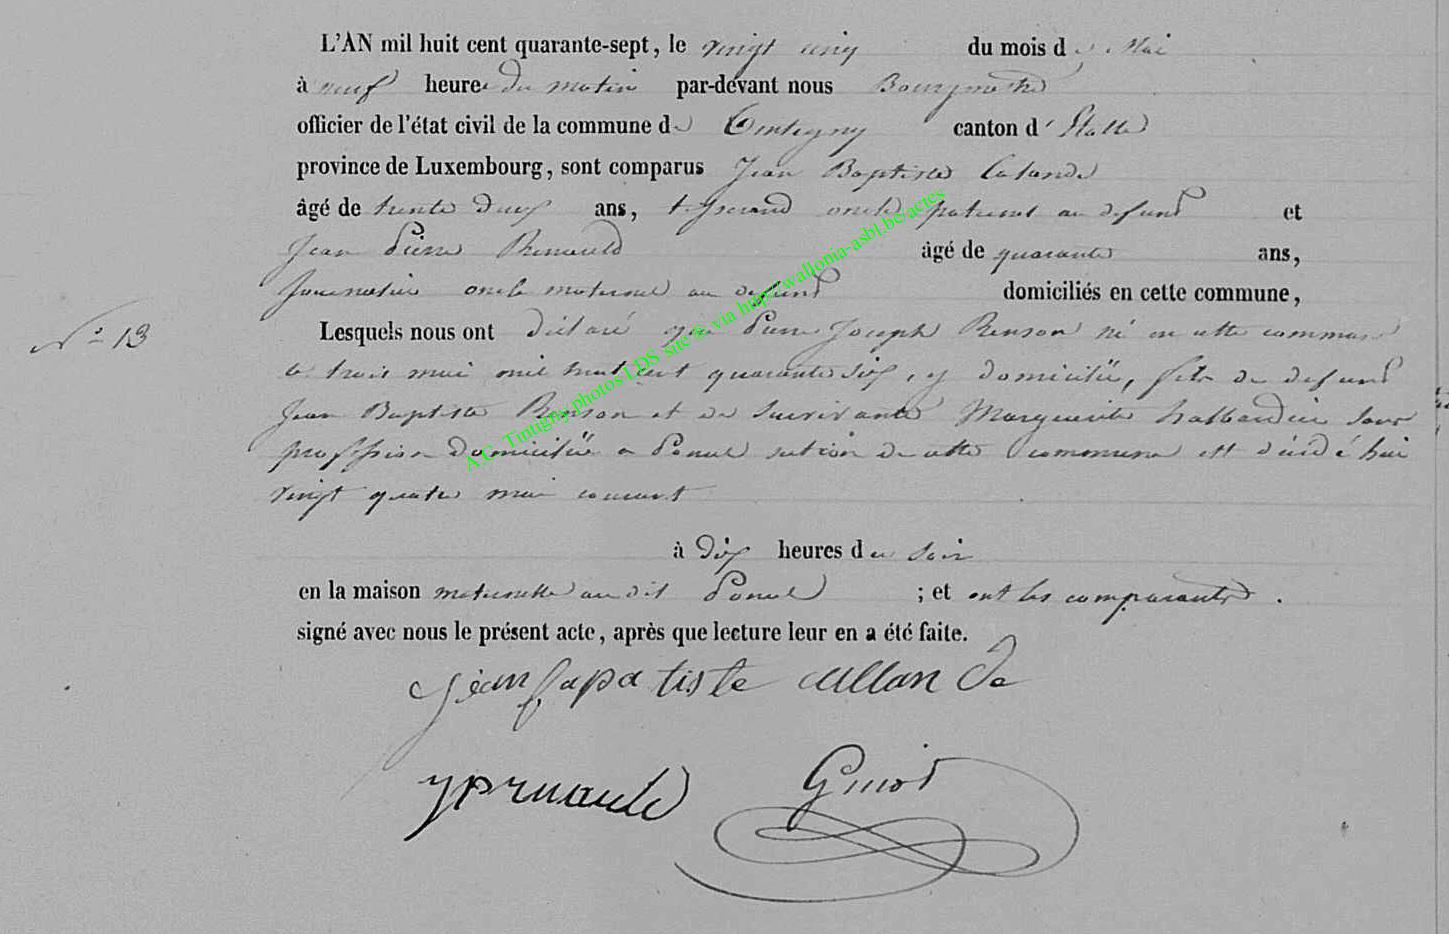 L'AN mil huit cent quarante-sept, le vingt cinq du mois de Mai
à neuf heures du matin par-devant nous Bourgmestre
officier de l'état civil de la commune de Tintigny canton d'Etalle
province de Luxembourg, sont comparus Jean Baptiste Calande
âgé de trente deux ans, tisserand oncle paternel au defunt et
Jean Pierre Renauld âgé de quarante ans,
Journalier oncle maternel au defunt domiciliés en cette commune,
N° 13
Lesquels nous ont déclaré que Pierre Joseph Renson né en cette commune
le trois mai mil huit cent quarante six, y domicilié, fils de defunt
Jean Baptiste Renson et de Survivante Marguerite hallardin sans
profession domiciliée a Ponsel section de cette commune est décédé hier
vingt quatre mai courant
à dix heures du soir
en la maison maternelle au dit Ponsel ; et ont les comparants .
signé avec nous le présent acte, après que lecture leur en a été faite.
jean bapatiste callande
jprnauld Guiot
A.G. Tintigny photos LDS site © via http://wallonia-asbl.be/actes